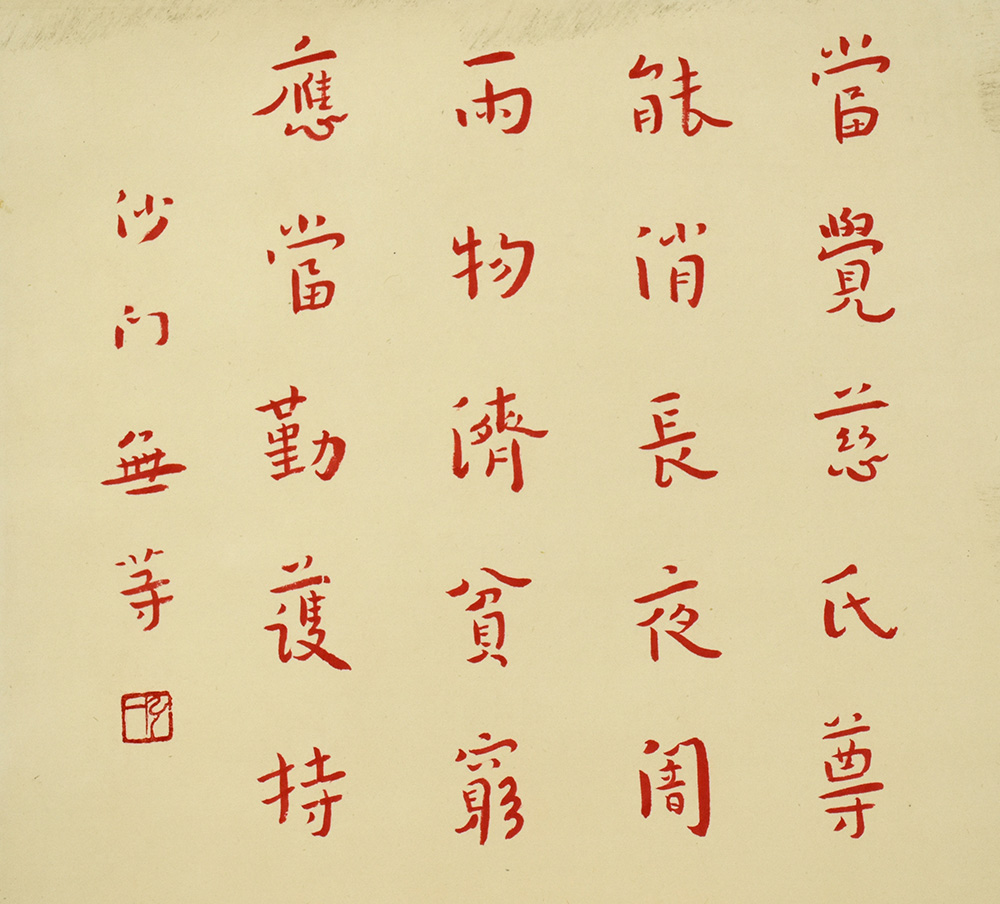 當覺慈氏尊
能消長夜闇
雨物濟貧窮
應當勤護持
沙门無等